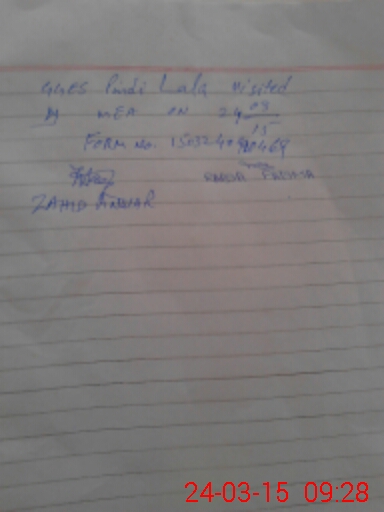 GGES Pindi Lala visited
By MEA ON 24 03
15
FORM NO.
ZAHID ANWAR
24-03-15 09:28